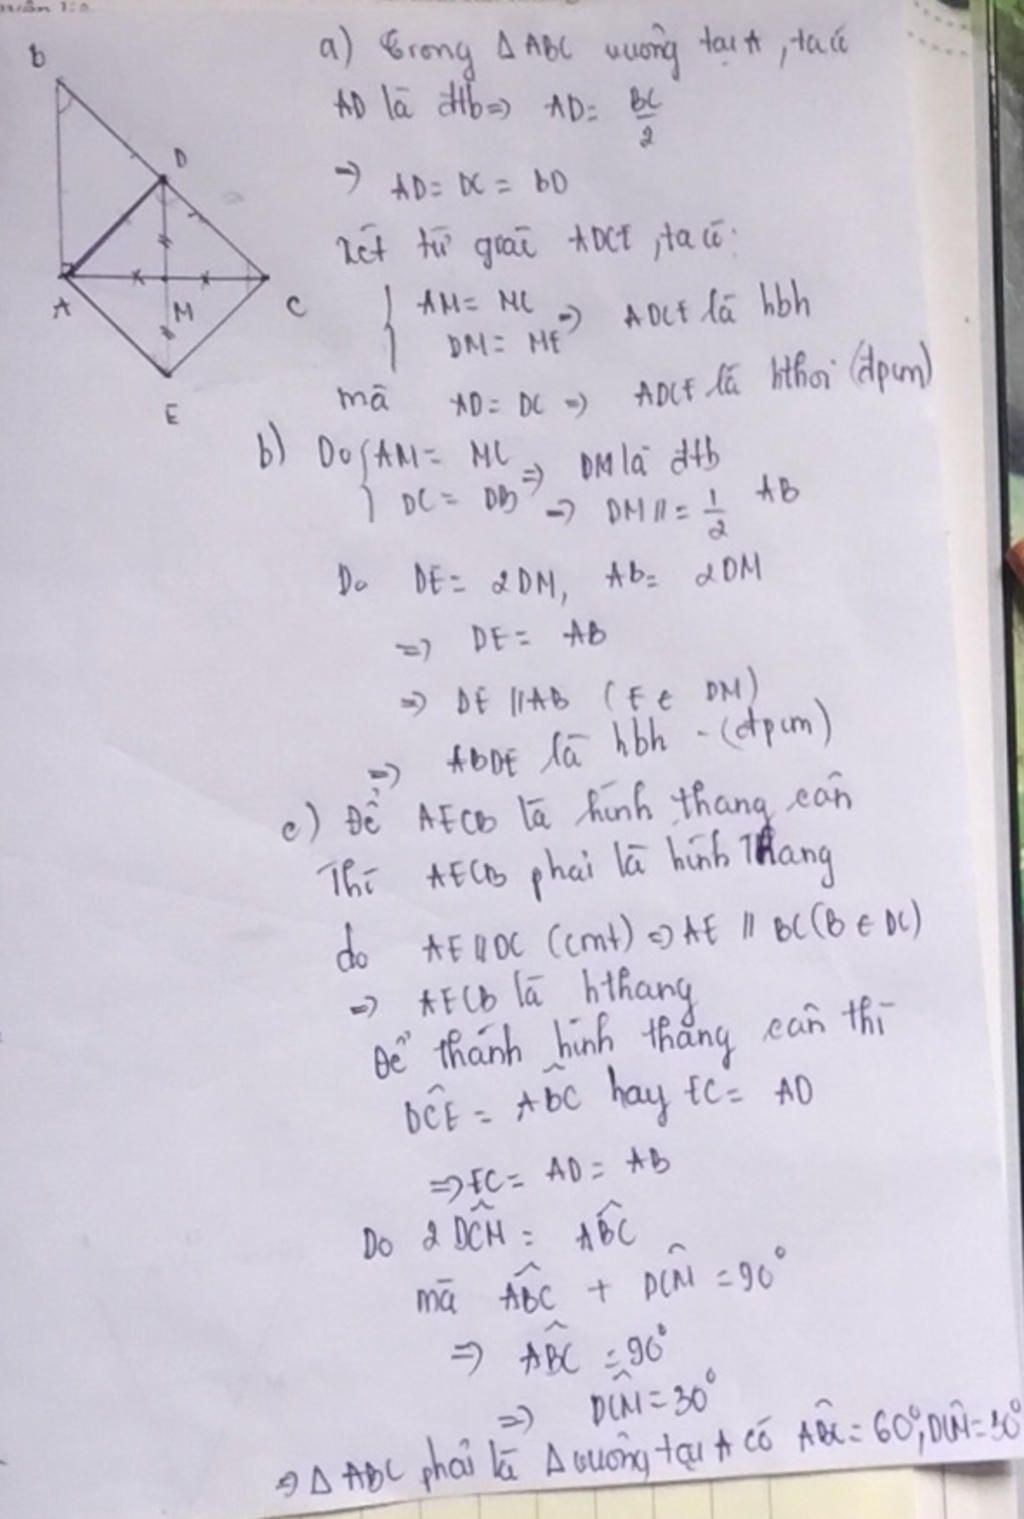 B
D
A
M
C
E
a) Trong Δ ABC vuông tại A, ta có
AD là đtb => AD = BC/2
=> AD = DC = BD
Xét tứ giác ADCE, ta có:
{ AM = MC
DM = ME => ADCE là hbh
mà AD = DC => ADCE là hthoi (đpcm)
b) Do { AM = MC
DC = DB => DM là đtb
=> DM // = 1/2 AB
Do DE = 2DM, AB = 2DM
=> DE = AB
=> DE // AB (E ∈ DM)
=> ABDE là hbh - (đpcm)
c) Để AECB là hình thang cân
Thì AECB phải là hình Thang
do AE // DC (cmt) => AE // BC (B ∈ DC)
=> AECB là hthang
Để thành hình thang cân thì
DĈE = AB̂C hay EC = AD
=> EC = AD = AB
Do 2 DĈM = AB̂C
mà AB̂C + DĈM = 90°
=> AB̂C = 90°
=> DĈM = 30°
=> Δ ABC phải là Δ vuông tại A có AB̂C = 60°, DĈM = 30°